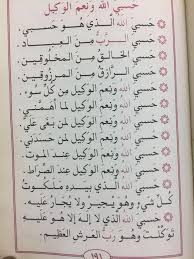 حَسْبِيَ اللهُ وَنِعْمَ الْوَكِيلُ
حَسْبِيَ اللهُ الَّذِي هُوَ حَسْبِي.
حَسْبِيَ الرَّبُّ مِنَ الْعِبَادِ.
حَسْبِيَ الْخَالِقُ مِنَ الْمَخْلُوقِينَ.
حَسْبِيَ الرَّازِقُ مِنَ الْمَرْزُوقِينَ.
حَسْبِيَ اللهُ وَنِعْمَ الْوَكِيلُ مِنْ كُلِّ سُوءٍ.
حَسْبِيَ اللهُ وَنِعْمَ الْوَكِيلُ لِمَا أَهَمَّنِي.
حَسْبِيَ اللهُ وَنِعْمَ الْوَكِيلُ لِمَنْ بَغَى عَلَيَّ.
حَسْبِيَ اللهُ وَنِعْمَ الْوَكِيلُ لِمَنْ حَسَدَنِي.
حَسْبِيَ اللهُ وَنِعْمَ الْوَكِيلُ عِنْدَ الْمَوْتِ.
حَسْبِيَ اللهُ وَنِعْمَ الْوَكِيلُ عِنْدَ الصِّرَاطِ.
حَسْبِيَ اللهُ الَّذِي بِيَدِهِ مَلَكُوتُ
كُلِّ شَيْءٍ وَهُوَ يُجِيرُ وَلَا يُجَارُ عَلَيْهِ.
حَسْبِيَ اللهُ الَّذِي لَا إِلَهَ إِلَّا هُوَ عَلَيْهِ
تَوَكَّلْتُ وَهُوَ رَبُّ الْعَرْشِ الْعَظِيمِ.
١٩١